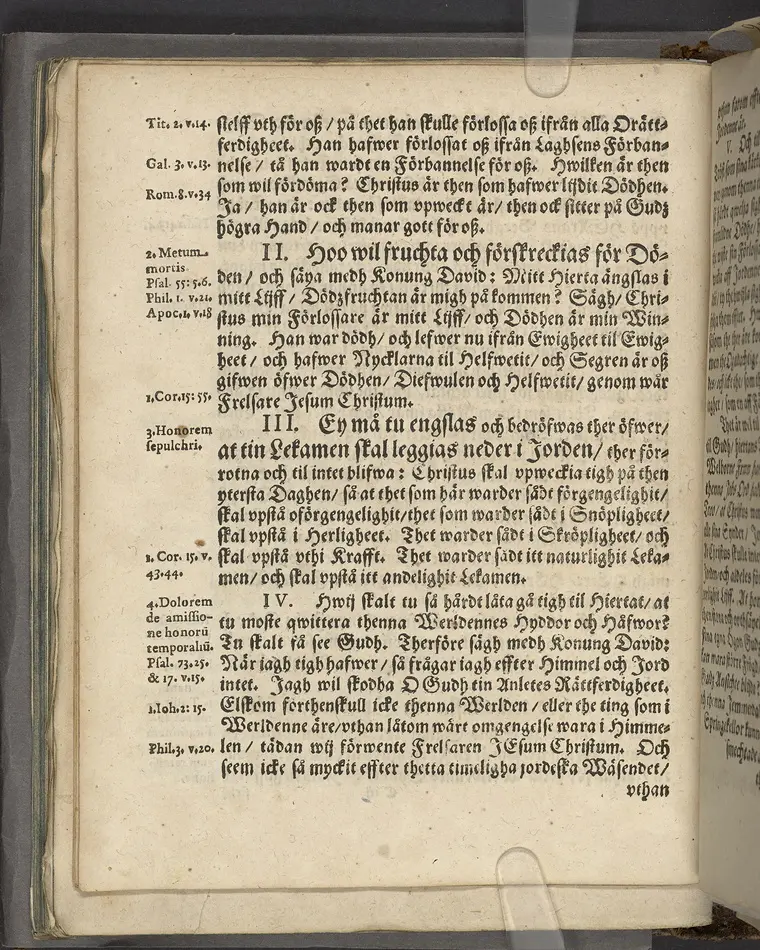 Tit. 2. v.14.
sielff vth för oß / på thet han skulle förlossa oß ifrån alla Orätt-
ferdigheet. Han hafwer förlossat oß ifrån Laghsens Förban-
Gal. 3. v.13.
nelse / tå han wardt en Förbannelse för oß. Hwilken är then
som wil fördöma? Christus är then som hafwer lijdit Dödhen.
Rom. 8. v.34
Ja / han är ock then som vpweckt är / then ock sitter på Gudz
högra Hand / och manar gott för oß.
2. Metum
mortis
Psal. 55: 5.6.
Phil. 1. v.21.
Apoc. 1. v.18
II. Hoo wil fruchta och förskreckias för Dö-
den / och säya medh Konung David: Mitt Hierta ängslas i
mitt Lijff / Dödzfruchtan är migh på kommen? Sägh / Chri-
stus min Förlossare är mitt Lijff / och Dödhen är min Win-
ning. Han war dödh / och lefwer nu ifrån Ewigheet til Ewig-
heet / och hafwer Nycklarna til Helfwetit / och Segren är oß
gifwen öfwer Dödhen / Diefwulen och Helfwetit / genom wår
1. Cor. 15: 55.
Frelsare Jesum Christum.
3. Honorem
sepulchri.
III. Ey må tu engslas och bedröfwas ther öfwer /
at tin Lekamen skal leggias neder i Jorden / ther för-
rotna och til intet blifwa: Christus skal vpweckia tigh på then
ytersta Daghen / så at thet som här warder sådt förgengelighit /
skal vpstå oförgengelighit / thet som warder sådt i Snöpligheet /
skal vpstå i Herligheet. Thet warder sådt i Skröpligheet / och
1. Cor. 15. v.
43.44.
skal vpstå vthi Krafft. Thet warder sådt itt naturlighit Leka-
men / och skal vpstå itt andelighit Lekamen.
4. Dolorem
de amissio-
ne honorū
temporaliū.
Psal. 73.25.
& 17. v.15.
IV. Hwij skalt tu så hårdt låta gå tigh til Hiertat / at
tu moste qwittera thenna Werldennes Hyddor och Häfwor?
Tu skalt få see Gudh. Therföre sägh medh Konung David:
När iagh tigh hafwer / så frågar iagh effter Himmel och Jord
intet. Jagh wil skodha O Gudh tin Anletes Rättferdigheet.
1. Ioh. 2: 15.
Elskom forthenskull icke thenna Werlden / eller the ting som i
Werldenne äre / vthan låtom wårt omgengelse wara i Himme-
Phil. 3. v.20.
len / tädan wij förwente Frelsaren JEsum Christum. Och
seem icke så myckit effter thetta timeligha jordeska Wäsendet /
vthan